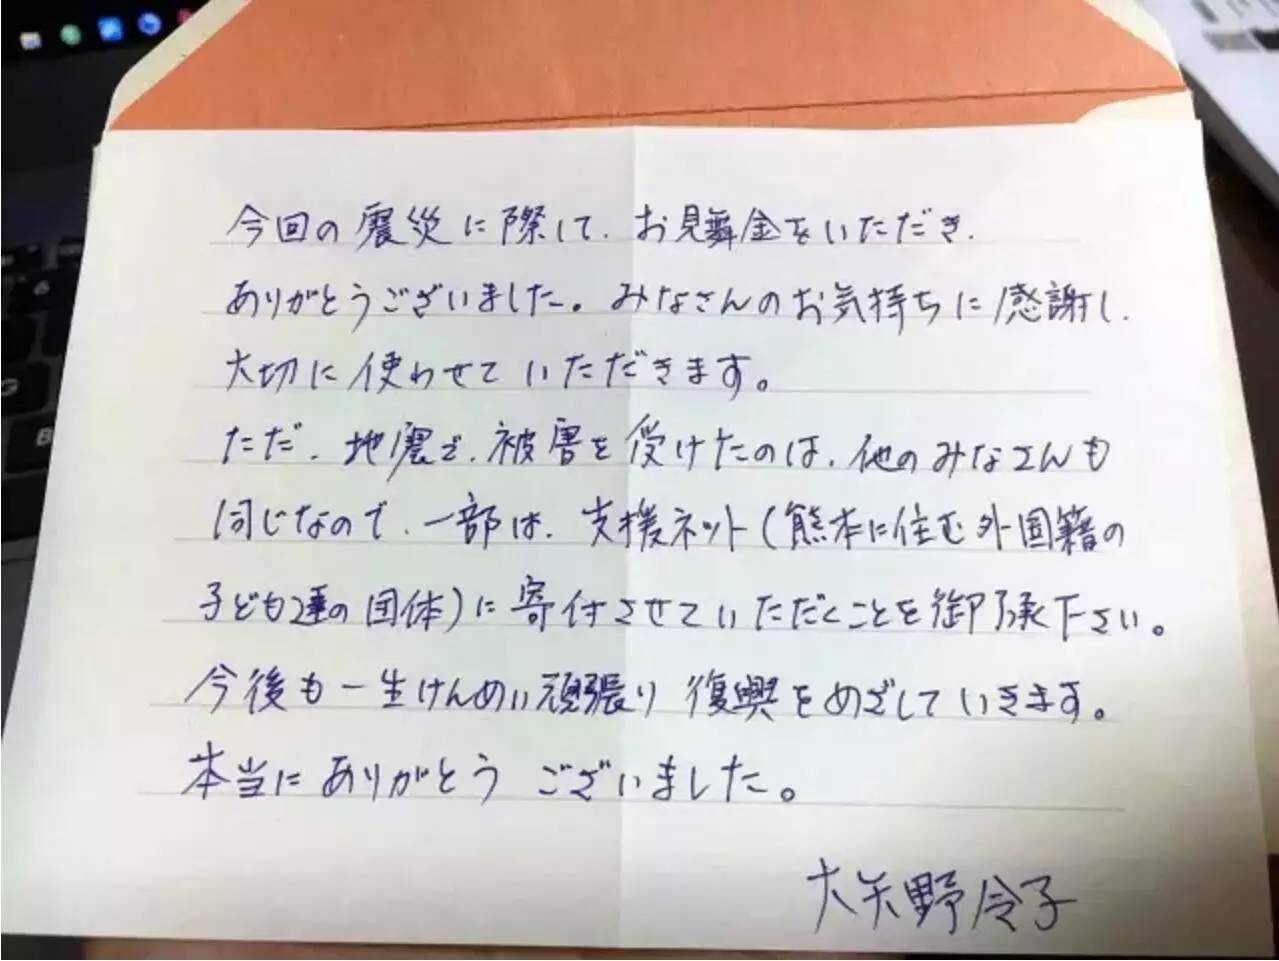 今回の震災に際して、お見舞金をいただき、
ありがとうございました。みなさんのお気持ちに感謝し、
大切に使わせていただきます。
ただ、地震で、被害を受けたのは、他のみなさんも
同じなので、一部は、支援ネット(熊本に住む外国籍の
子ども達の団体)に寄付させていただくことを御了承下さい。
今後も一生けんめい頑張り 復興をめざしていきます。
本当にありがとう ございました。
大矢野冷子